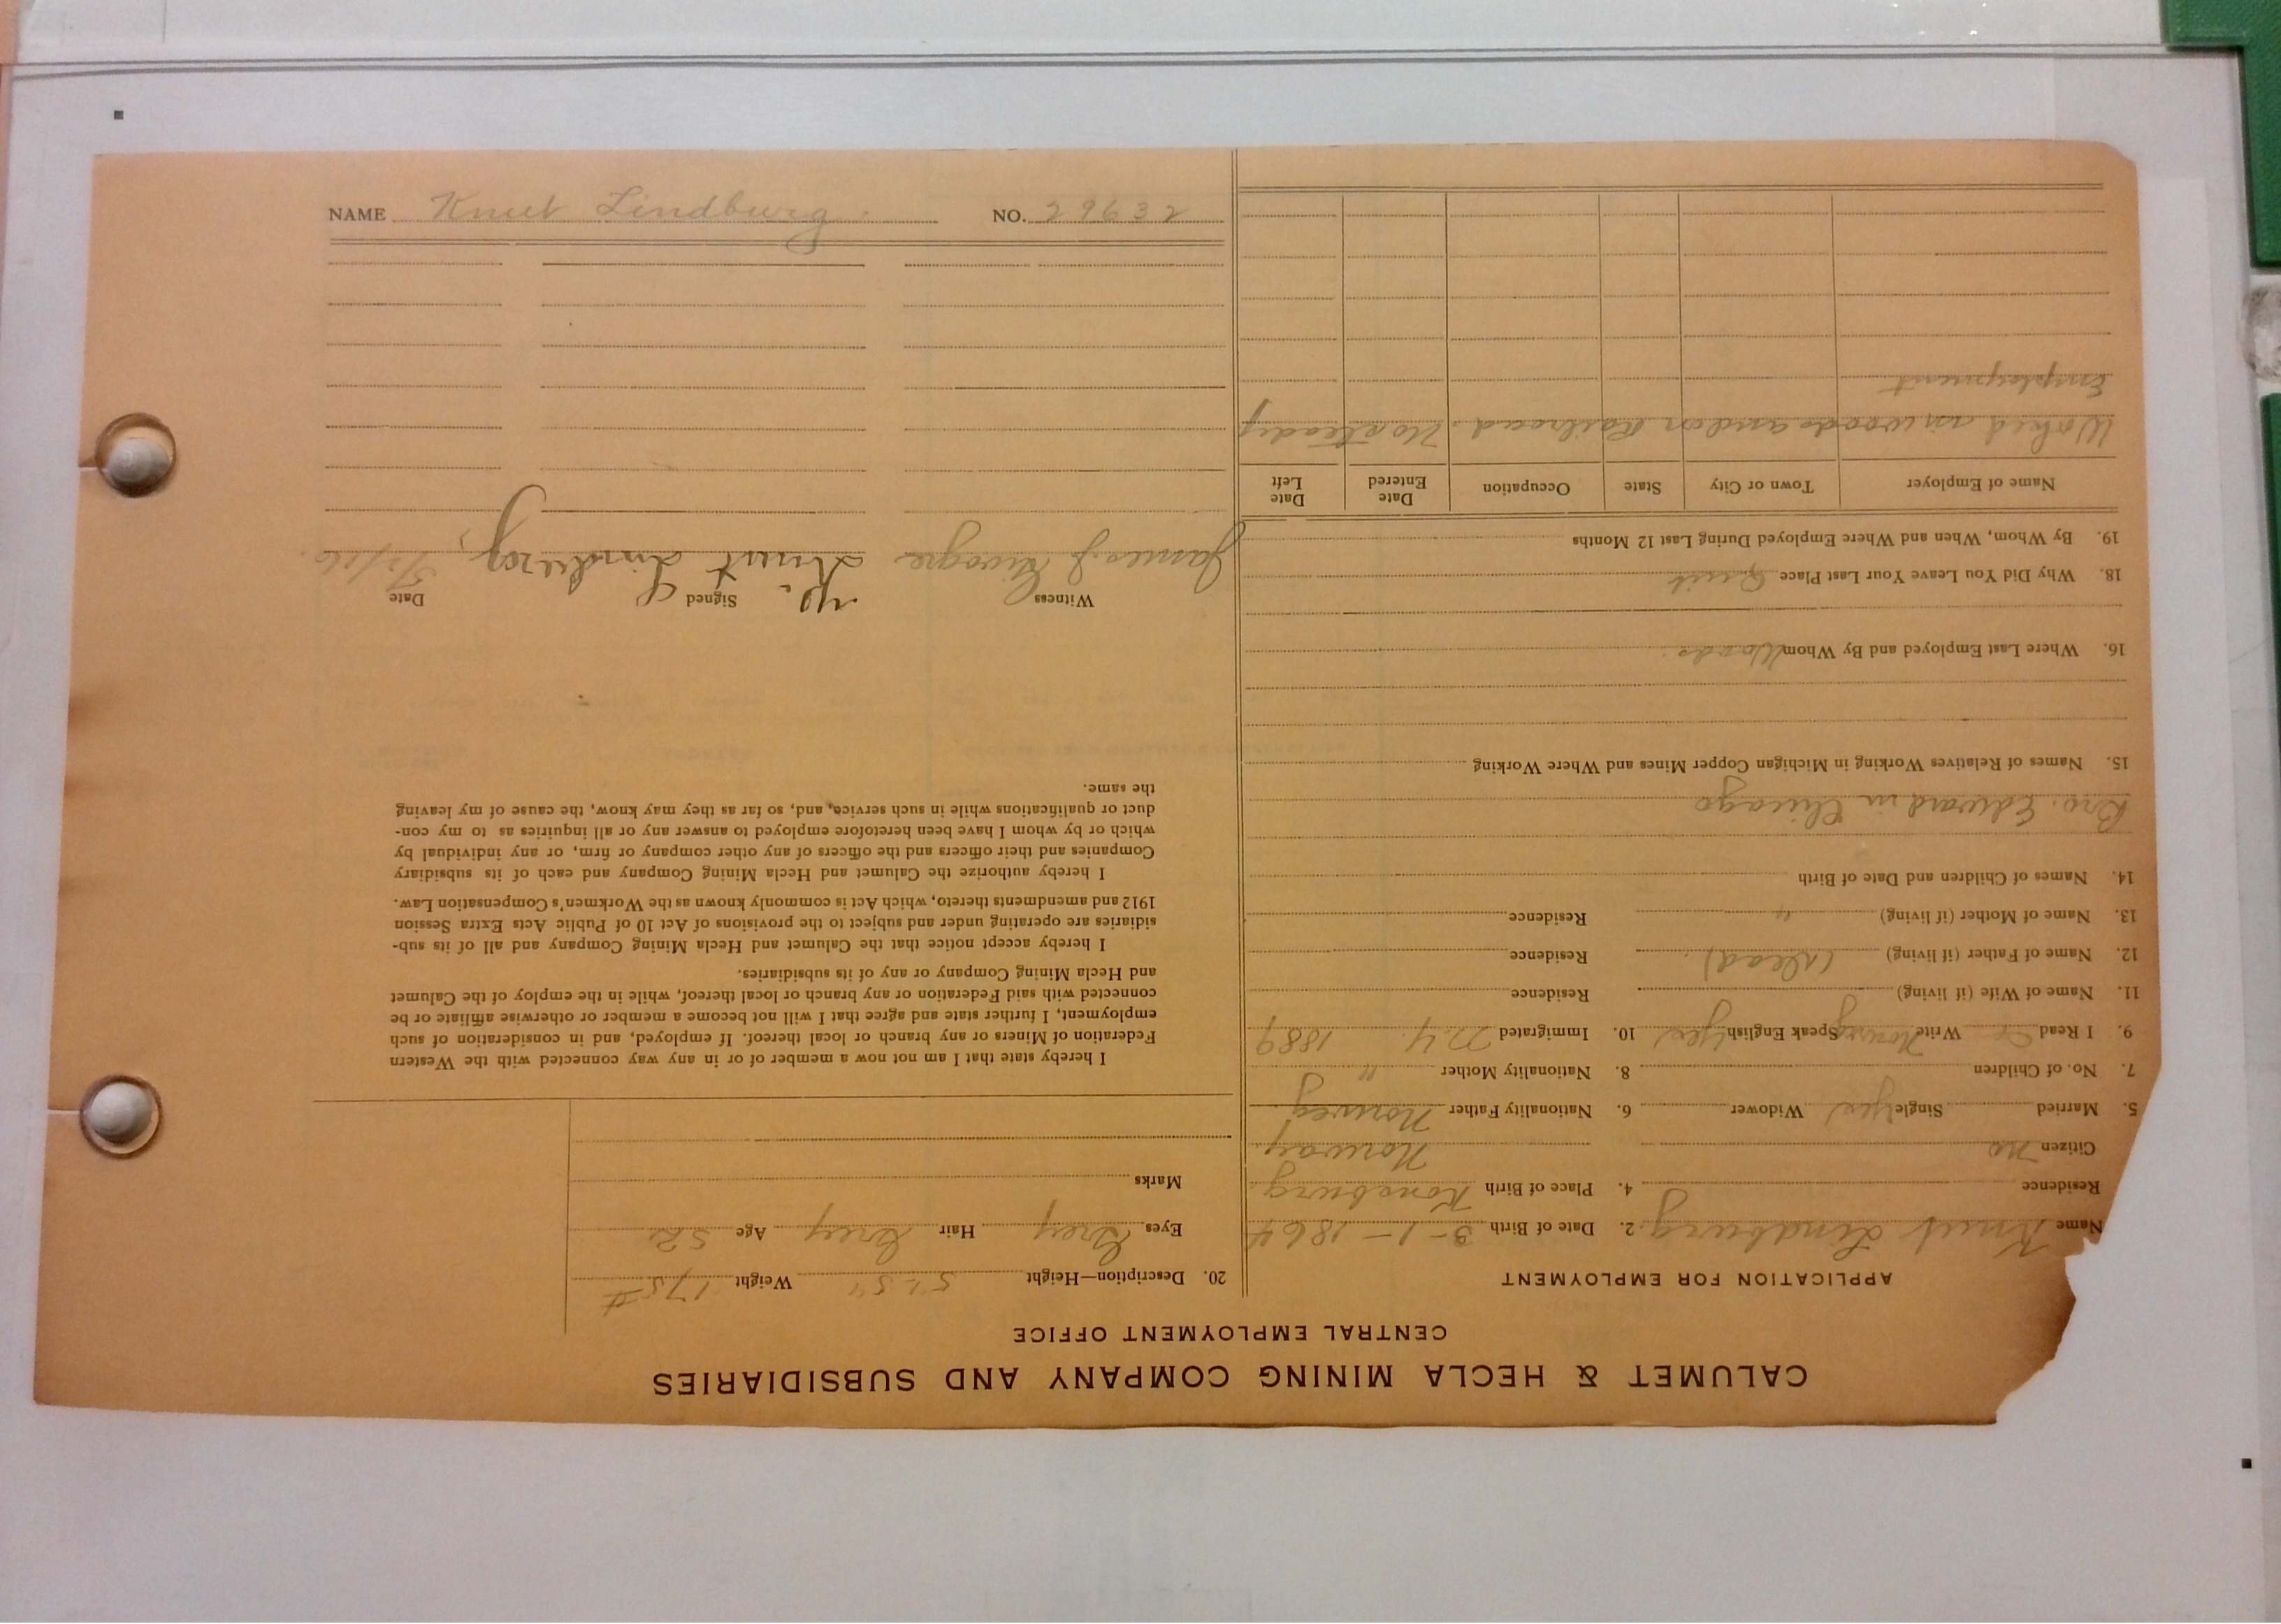 NAME Knut Lindburg. NO. 29632
CALUMET & HECLA MINING COMPANY AND SUBSIDIARIES
CENTRAL EMPLOYMENT OFFICE
APPLICATION FOR EMPLOYMENT
Name Knut Lindburg. 2. Date of Birth 3-1-1864
Residence 4. Place of Birth Konsburg
Citizen no Norway
5. Married Single yes Widower 6. Nationality Father Norweg
7. No. of Children 8. Nationality Mother "
9. I Read Write Norweg Speak English yes 10. Immigrated 1889
11. Name of Wife (if living) Residence
12. Name of Father (if living) (dead) Residence
13. Name of Mother (if living) " Residence
14. Names of Children and Date of Birth
Bro. Edward in Chicago
15. Names of Relatives Working in Michigan Copper Mines and Where Working
16. Where Last Employed and By Whom Woods.
18. Why Did You Leave Your Last Place Quit
19. By Whom, When and Where Employed During Last 12 Months
Name of Employer Town or City State Occupation Date Entered Date Left
Worked in woods and on Railroad. No steady
Employment
20. Description—Height 5'-5" Weight 175#
Eyes Grey Hair Grey Age 52
Marks
I hereby state that I am not now a member of or in any way connected with the Western
Federation of Miners or any branch or local thereof. If employed, and in consideration of such
employment, I further state and agree that I will not become a member or otherwise affiliate or be
connected with said Federation or any branch or local thereof, while in the employ of the Calumet
and Hecla Mining Company or any of its subsidiaries.
I hereby accept notice that the Calumet and Hecla Mining Company and all of its sub-
sidiaries are operating under and subject to the provisions of Act 10 of Public Acts Extra Session
1912 and amendments thereto, which Act is commonly known as the Workmen's Compensation Law.
I hereby authorize the Calumet and Hecla Mining Company and each of its subsidiary
Companies and their officers and the officers of any other company or firm, or any individual by
which or by whom I have been heretofore employed to answer any or all inquiries as to my con-
duct or qualifications while in such service, and, so far as they may know, the cause of my leaving
the same.
Witness Signed Date
James J Knut Lindburg,